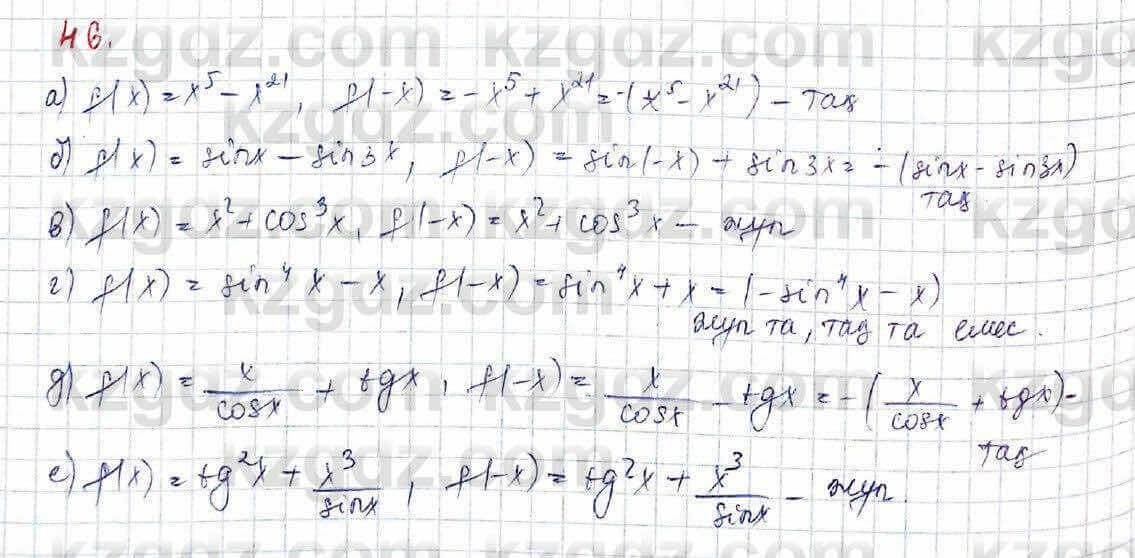 46.
а) f(x) = x⁵ - x²¹, f(-x) = -x⁵ + x²¹ = -(x⁵ - x²¹) - тақ
б) f(x) = sinx - sin3x, f(-x) = sin(-x) + sin3x = -(sinx - sin3x)
тақ
в) f(x) = x² + cos³x, f(-x) = x² + cos³x - жұп
г) f(x) = sin⁴x - x, f(-x) = sin⁴x + x = (-sin⁴x - x)
жұп та, тақ та емес.
д) f(x) = x/cosx + tgx, f(-x) = x/cosx - tgx = -(x/cosx + tgx) -
тақ
е) f(x) = tg²x + x³/sinx, f(-x) = tg²x + x³/sinx - жұп.
kzgdz.com